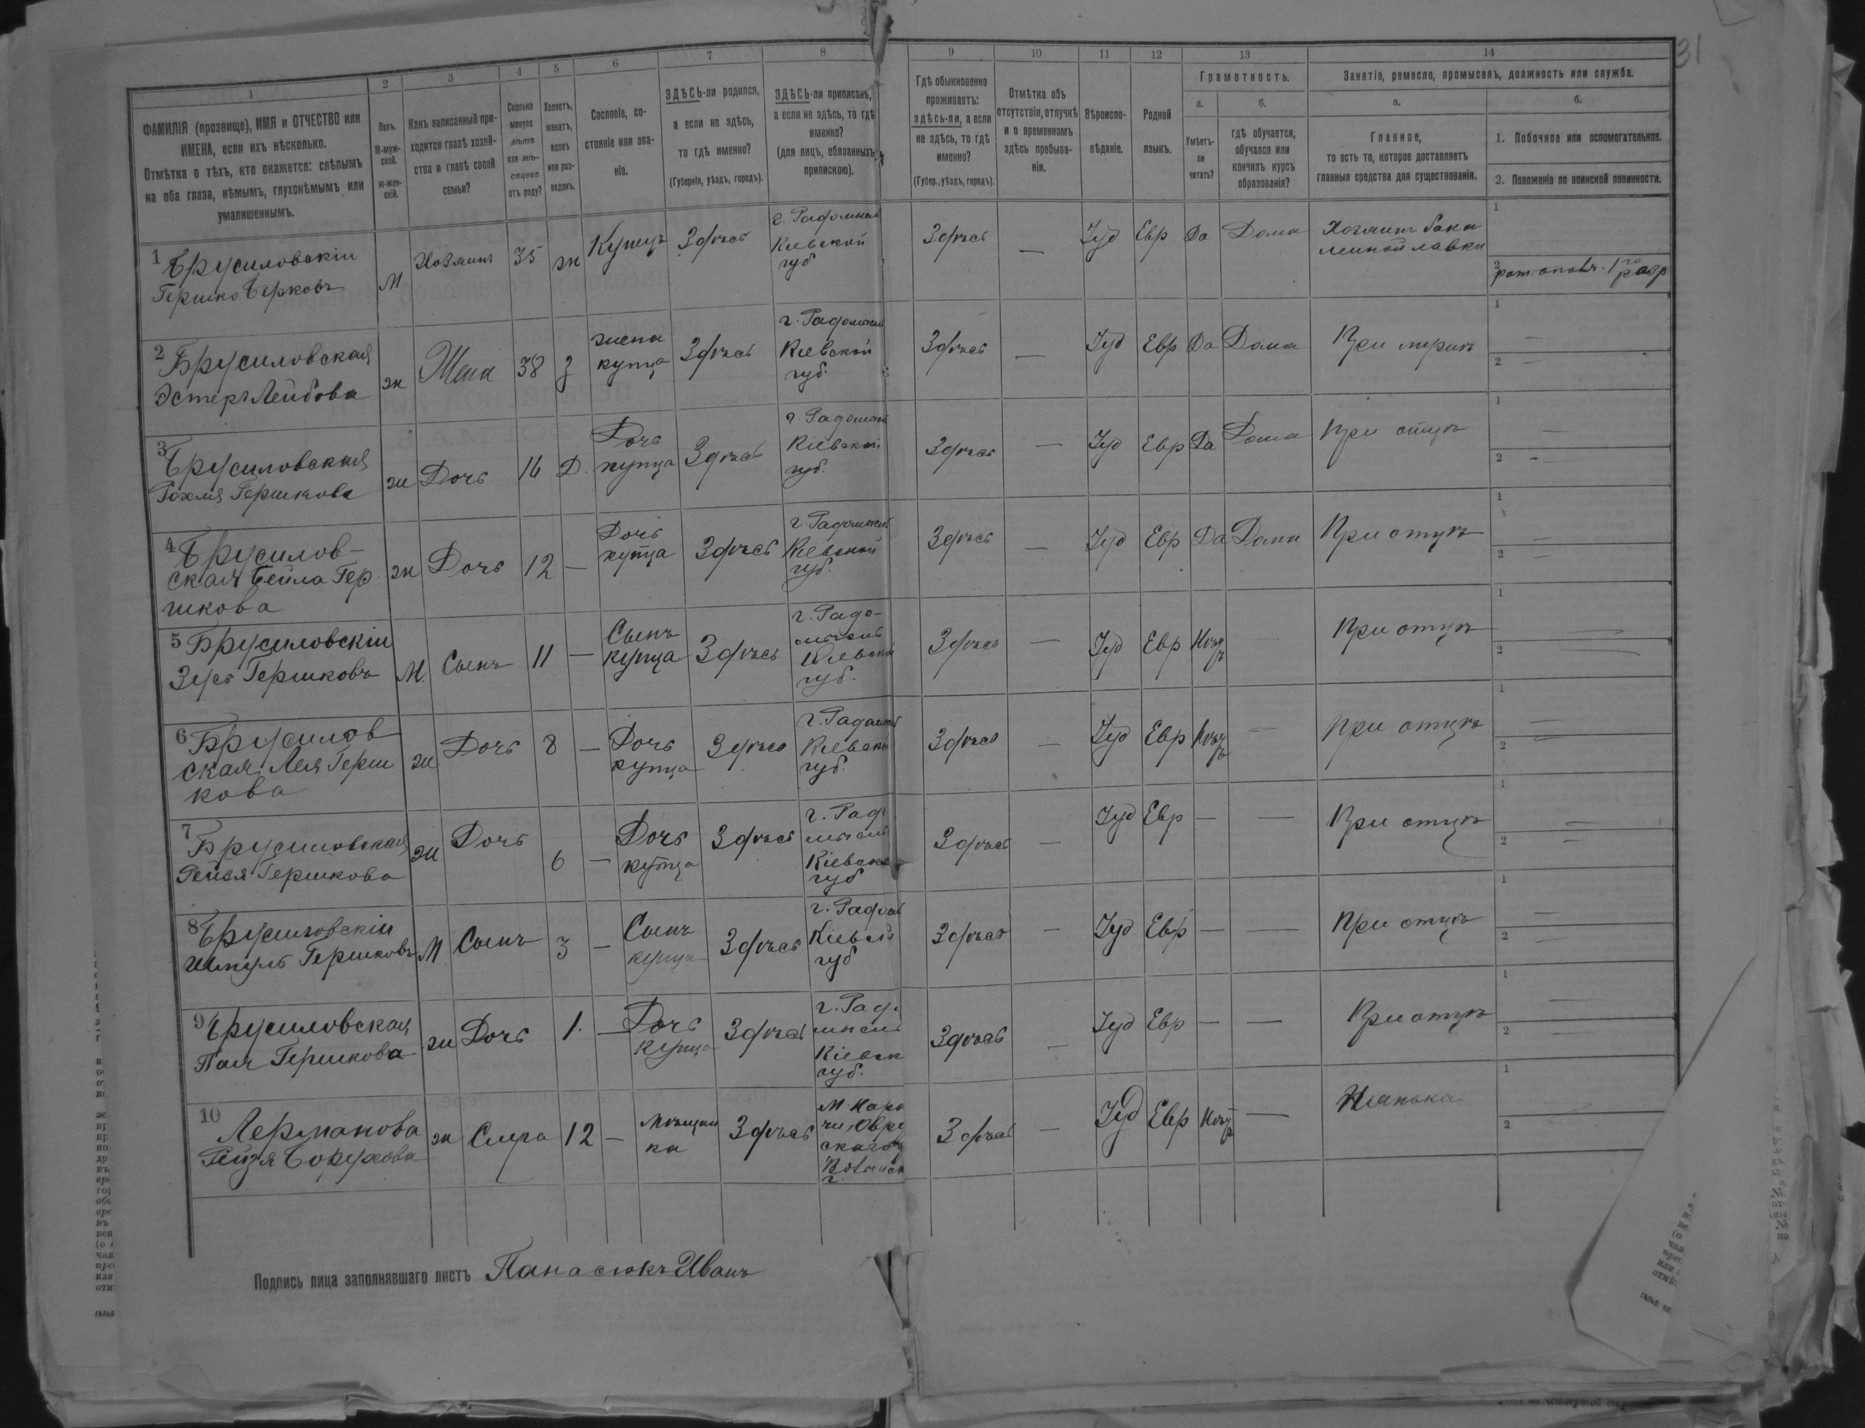 31
1 2 3 4 5 6 7 8 9 10 11 12 13 14
ФАМИЛІЯ (прозвище), ИМЯ и ОТЧЕСТВО или
ИМЕНА, если ихъ нѣсколько.
Отмѣтка о тѣхъ, кто окажется: слѣпымъ
на оба глаза, нѣмымъ, глухонѣмымъ или
умалишеннымъ.
Полъ.
М-муж-
ской.
Ж-жен-
скій.
Какъ записанный при-
ходится главѣ хозяй-
ства и главѣ своей
семьи?
Сколько
минуло
лѣтъ
или мѣ-
сяцевъ
отъ роду?
Холостъ,
женатъ,
вдовъ
или раз-
веденъ.
Сословіе, со-
стояніе или зва-
ніе.
ЗДѢСЬ-ли родился,
а если не здѣсь,
то гдѣ именно?
(Губернія, уѣздъ, городъ).
ЗДѢСЬ-ли приписанъ,
а если не здѣсь, то гдѣ
именно?
(для лицъ, обязанныхъ
припискою).
Гдѣ обыкновенно
проживаетъ:
здѣсь-ли, а если
не здѣсь, то гдѣ
именно?
(Губер., уѣздъ, городъ).
Отмѣтка объ
отсутствіи, отлучкѣ
и о временномъ
здѣсь пребыва-
ніи.
Вѣроиспо-
вѣданіе.
Родной
языкъ.
Грамотность.
а.
Умѣетъ-
ли
читать?
б.
гдѣ обучается,
обучался или
кончилъ курсъ
образованія?
Занятіе, ремесло, промыселъ, должность или служба.
а.
Главное,
то есть то, которое доставляетъ
главныя средства для существованія.
б.
1. Побочное или вспомогательное.
2. Положеніе по воинской повинности.
1 Брусиловскій
Гершко Берковъ
М
Хозяинъ
35
ж
Купецъ
Здѣсь
г. Радомысль
Кіевской
губ
Здѣсь
—
Іуд
Евр
Да
Дома
Хозяинъ бака
лейной лавки
1
2 рат ополч. 1го разр
2 Брусиловская
Эстеръ Лейбова
ж
Жена
38
з
жена
купца
Здѣсь
г. Радомысль
Кіевской
губ.
Здѣсь
—
Іуд
Евр
Да
Дома
При мужѣ
1 —
2 —
3 Брусиловская
Рохля Гершкова
ж
Дочь
16
Д.
Дочь
купца
Здѣсь
г. Радомысль
Кіевской
губ.
Здѣсь
—
Іуд
Евр
Да
Дома
При отцѣ
1 —
2 —
4 Брусилов-
ская Бейла Гер
шкова
ж
Дочь
12
—
Дочь
купца
Здѣсь
г. Радомысль
Кіевской
губ.
Здѣсь
—
Іуд
Евр
Да
Дома
При отцѣ
1 —
2 —
5 Брусиловскій
Зусь Гершковъ
М.
Сынъ
11
—
Сынъ
купца
Здѣсь
г. Радо-
мысль
Кіевской
губ.
Здѣсь
—
Іуд
Евр
Нѣтъ
При отцѣ
1 —
2 —
6 Брусилов
ская Лея Герш
кова
ж
Дочь
8
—
Дочь
купца
Здѣсь
г. Радомысль
Кіевской
губ.
Здѣсь
—
Іуд
Евр
Нѣтъ
—
При отцѣ
1 —
2 —
7 Брусиловская
Гершкова
ж
Дочь
6
—
Дочь
купца
Здѣсь
г. Радо
мысль
Кіевской
губ
Здѣсь
—
Іуд
Евр
—
—
При отцѣ
1 —
2 —
8 Брусиловскій
Шмуль Гершковъ
М
Сынъ
3
—
Сынъ
купца
Здѣсь
г. Радом
Кіевской
губ
Здѣсь
—
Іуд
Евр
—
—
При отцѣ
1 —
2 —
9 Брусиловская
Гершкова
ж
Дочь
1.
—
Дочь
купца
Здѣсь
г. Радо
мысль
Кіевск
губ.
Здѣсь
—
Іуд
Евр
—
—
При отцѣ
1 —
2 —
10
Лерманова
Борухова
ж
12
—
мѣщан
ка
Здѣсь
Здѣсь
—
Іуд
Евр
Нѣтъ
—
Нянька
1 —
2 —
Подпись лица заполнявшаго листъ Панасюкъ Иванъ